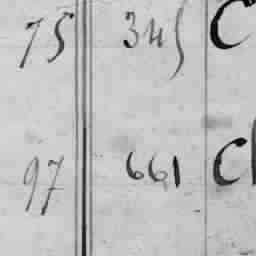 75 345 C
97 661 Cl